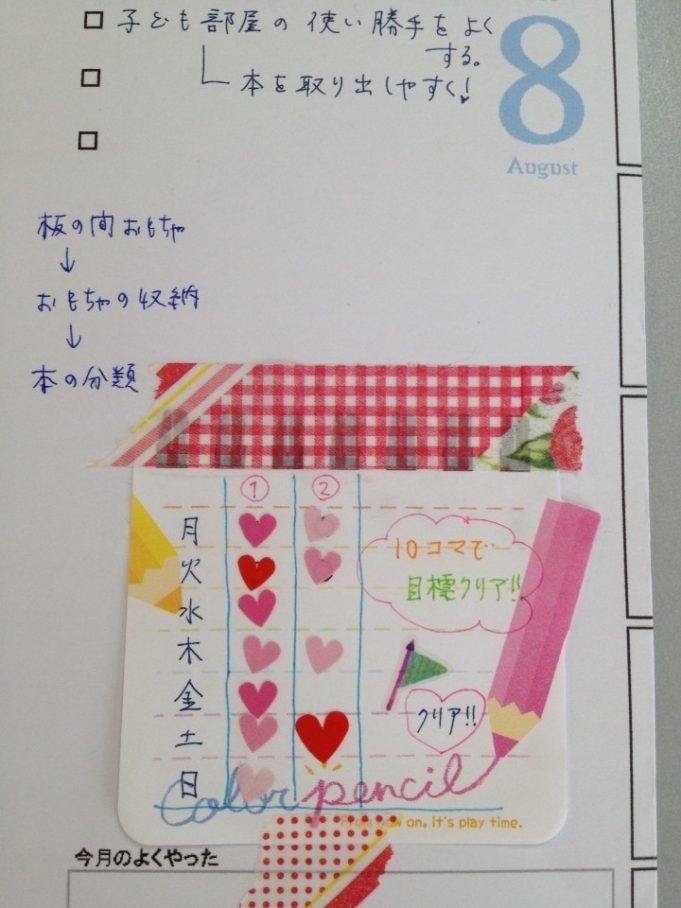 □ 子ども部屋の使い勝手をよく
する。
□ 本を取り出しやすく!
□
8
August
板の間おもちゃ
↓
おもちゃの収納
↓
本の分類
① ②
月
火
水
木
金
土
日
10コマで
目標クリア!!
クリア!!
color pencil
From now on, it's play time.
今月のよくやった